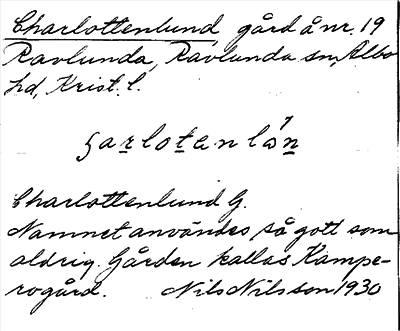 Charlottenlund gård å nr. 19
Ravlunda, Ravlunda sn, Albo
hd, Krist. l.
Charlottenlund G.
Namnet användes så gott som
aldrig. Gården kallas Kampe-
rogård. Nils Nilsson 1930